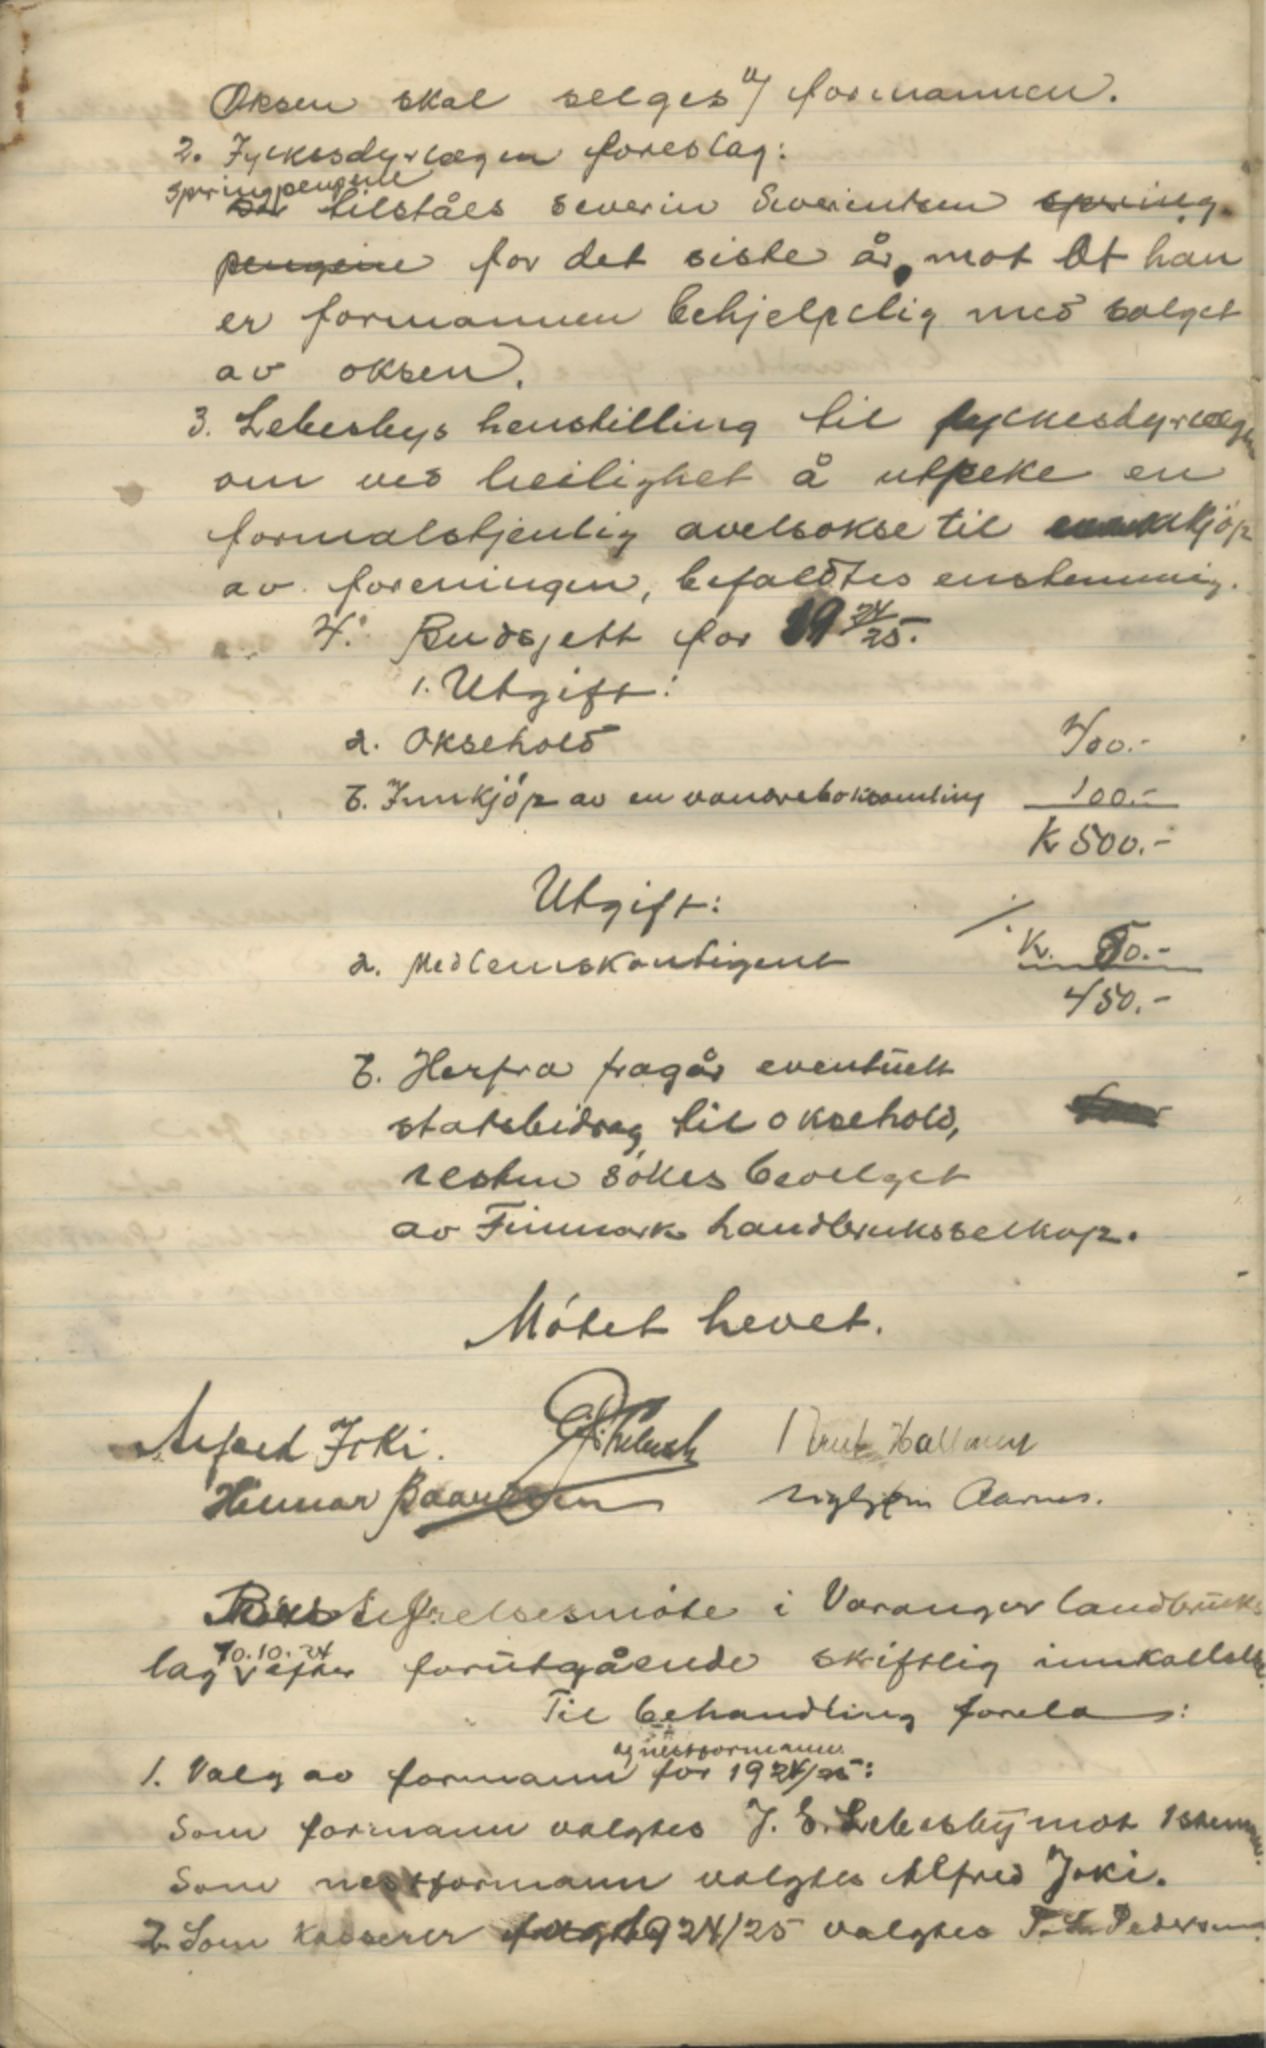 Oksen skal selges a/ formannen.
2. Fylkesdyrlægen foreslag:
springpengene
tilståes Severin Severintsen spring
pengene for det siste år, mot at han
er formannen behjelpelig med salget
av oksen.
3. Lebesbys henstilling til fylkesdyrlægen
om ved leilighet å utpeke en
formålstjenlig avelsokse til innkjöp
av foreningen, befaldtes enstemmig.
4. Budsjett for 1924/25.
1. Utgift:
a. Oksehold 400.-
b. Innkjöp av en vandreboksamling 100.-
Kr 500.-
Utgift:
a. Medlemskontigent ./. Kr. 50.-
450.-
b. Herfra fragår eventuelt
statsbidrag til oksehold,
resten sökes bevilget
av Finmark landbruksselkap.
Mötet hevet.
Alfred Joki.
Hennar Aarnes.
styrelsesmöte i Varanger landbruks
lag 10.10.24 efter forutgående skiftlig innkallelse.
Til behandling forela:
og nestformann
1. Valg av formann for 1924/25:
Som formann valgtes J. E. Lebesby mot 1 stemme.
Som nestformann valgtes Alfred Joki.
2. Som kasserer 1924/25 valgtes P. L. Pedersen